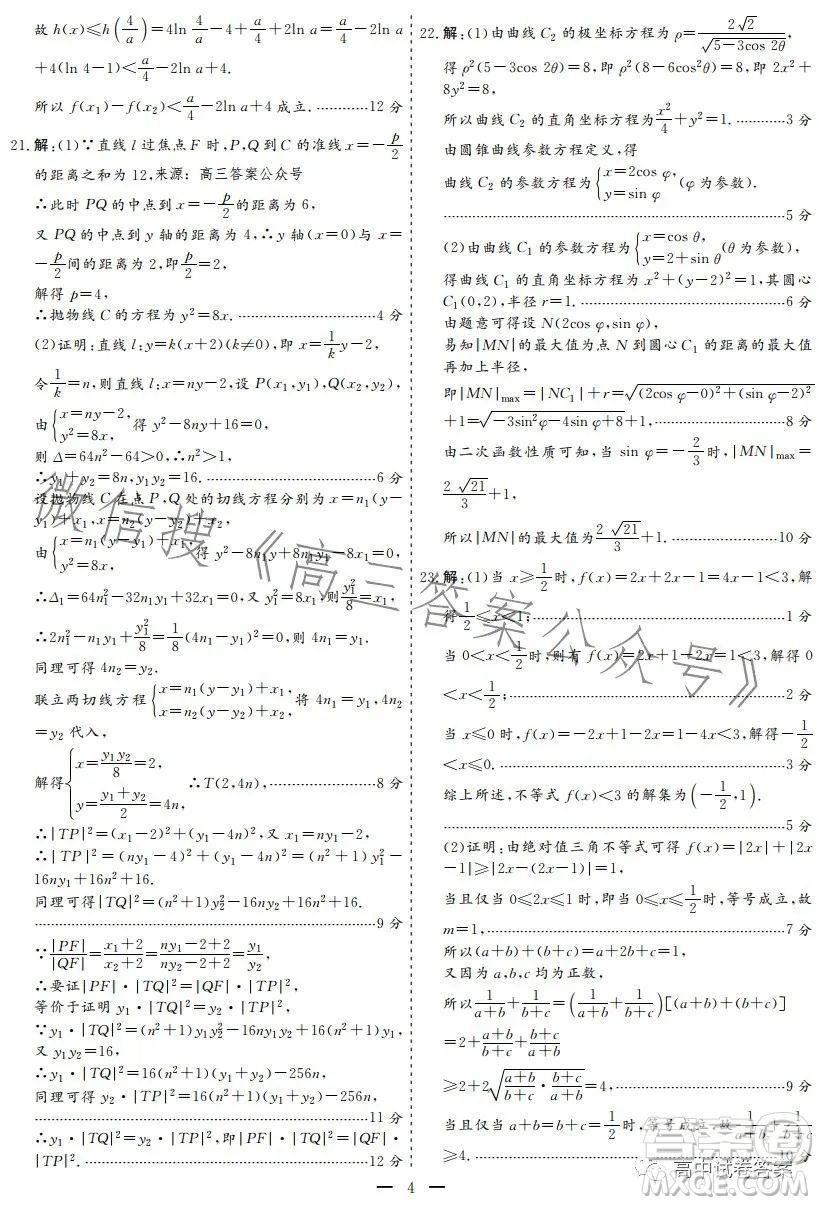 故 h(x)≤h(4/a)=4ln 4/a-4+a/4+2ln a=a/4-2ln a
+4(ln 4-1)<a/4-2ln a+4.
所以 f(x₁)-f(x₂)<a/4-2ln a+4 成立.…………12 分
21.解:(1)∵直线 l 过焦点 F 时,P,Q 到 C 的准线 x=-p/2
的距离之和为 12,来源：高三答案公众号
∴此时 PQ 的中点到 x=-p/2 的距离为 6,
又 PQ 的中点到 y 轴的距离为 4,∴y 轴(x=0)与 x=
-p/2 间的距离为 2,即 p/2=2,
解得 p=4,
∴抛物线 C 的方程为 y²=8x.…………4 分
(2)证明:直线 l:y=k(x+2)(k≠0),即 x=1/k y-2,
令 1/k=n,则直线 l:x=ny-2,设 P(x₁,y₁),Q(x₂,y₂),
由{x=ny-2, y²=8x, 得 y²-8ny+16=0,
则 Δ=64n²-64>0,∴n²>1,
∴y₁+y₂=8n,y₁y₂=16.…………6 分
设抛物线 C 在点 P,Q 处的切线方程分别为 x=n₁(y-
y₁)+x₁,x=n₂(y-y₂)+x₂,
由{x=n₁(y-y₁)+x₁, y²=8x, 得 y²-8n₁y+8n₁y₁-8x₁=0,
∴Δ₁=64n₁²-32n₁y₁+32x₁=0,又 y₁²=8x₁,则 y₁²/8=x₁,
∴2n₁²-n₁y₁+y₁²/8=1/8(4n₁-y₁)²=0,则 4n₁=y₁.
同理可得 4n₂=y₂.
联立两切线方程{x=n₁(y-y₁)+x₁, x=n₂(y-y₂)+x₂, 将 4n₁=y₁,4n₂
=y₂ 代入,
解得{x=y₁y₂/8=2, y=(y₁+y₂)/2=4n, ∴T(2,4n),…………8 分
∴|TP|²=(x₁-2)²+(y₁-4n)²,又 x₁=ny₁-2,
∴|TP|²=(ny₁-4)²+(y₁-4n)²=(n²+1)y₁²-
16ny₁+16n²+16.
同理可得|TQ|²=(n²+1)y₂²-16ny₂+16n²+16.
…………9 分
∵|PF|/|QF|=(x₁+2)/(x₂+2)=(ny₁-2+2)/(ny₂-2+2)=y₁/y₂,
∴要证|PF|·|TQ|²=|QF|·|TP|²,
等价于证明 y₁·|TQ|²=y₂·|TP|²,
∵y₁·|TQ|²=(n²+1)y₁y₂²-16ny₁y₂+16(n²+1)y₁,
又 y₁y₂=16,
∴y₁·|TQ|²=16(n²+1)(y₁+y₂)-256n,
同理可得 y₂·|TP|²=16(n²+1)(y₁+y₂)-256n,
…………11 分
∴y₁·|TQ|²=y₂·|TP|²,即|PF|·|TQ|²=|QF|·
|TP|².…………12 分
22.解:(1)由曲线 C₂ 的极坐标方程为 ρ=2√2/√(5-3cos 2θ),
得 ρ²(5-3cos 2θ)=8,即 ρ²(8-6cos²θ)=8,即 2x²+
8y²=8,
所以曲线 C₂ 的直角坐标方程为 x²/4+y²=1.…………3 分
由圆锥曲线参数方程定义,得
曲线 C₂ 的参数方程为{x=2cos φ, y=sin φ (φ 为参数).
…………5 分
(2)由曲线 C₁ 的参数方程为{x=cos θ, y=2+sin θ (θ 为参数),
得曲线 C₁ 的直角坐标方程为 x²+(y-2)²=1,其圆心
C₁(0,2),半径 r=1.…………6 分
由题意可得设 N(2cos φ,sin φ),
易知|MN|的最大值为点 N 到圆心 C₁ 的距离的最大值
再加上半径,
即|MN|max=|NC₁|+r=√((2cos φ-0)²+(sin φ-2)²)
+1=√(-3sin²φ-4sin φ+8)+1,…………8 分
由二次函数性质可知,当 sin φ=-2/3 时,|MN|max=
2√21/3+1,
所以|MN|的最大值为 2√21/3+1.…………10 分
23.解:(1)当 x≥1/2 时,f(x)=2x+2x-1=4x-1<3,解
得 1/2≤x<1;…………1 分
当 0<x<1/2 时,则有 f(x)=2x+1-2x=1<3,解得 0
<x<1/2;…………2 分
当 x≤0 时,f(x)=-2x+1-2x=1-4x<3,解得-1/2
<x≤0.…………3 分
综上所述,不等式 f(x)<3 的解集为(-1/2,1).
…………5 分
(2)证明:由绝对值三角不等式可得 f(x)=|2x|+|2x
-1|≥|2x-(2x-1)|=1,
当且仅当 0≤2x≤1 时,即当 0≤x≤1/2 时,等号成立,故
m=1,…………7 分
所以(a+b)+(b+c)=a+2b+c=1,
又因为 a,b,c 均为正数,
所以 1/(a+b)+1/(b+c)=(1/(a+b)+1/(b+c))[(a+b)+(b+c)]
=2+(a+b)/(b+c)+(b+c)/(a+b)
≥2+2√((a+b)/(b+c)·(b+c)/(a+b))=4,…………9 分
当且仅当 a+b=b+c=1/2 时,等号成立,故 1/(a+b)+1/(b+c)
≥4.…………10 分
4
微信搜《高三答案公众号》
高中试卷答案
答案圈
MXQE.COM